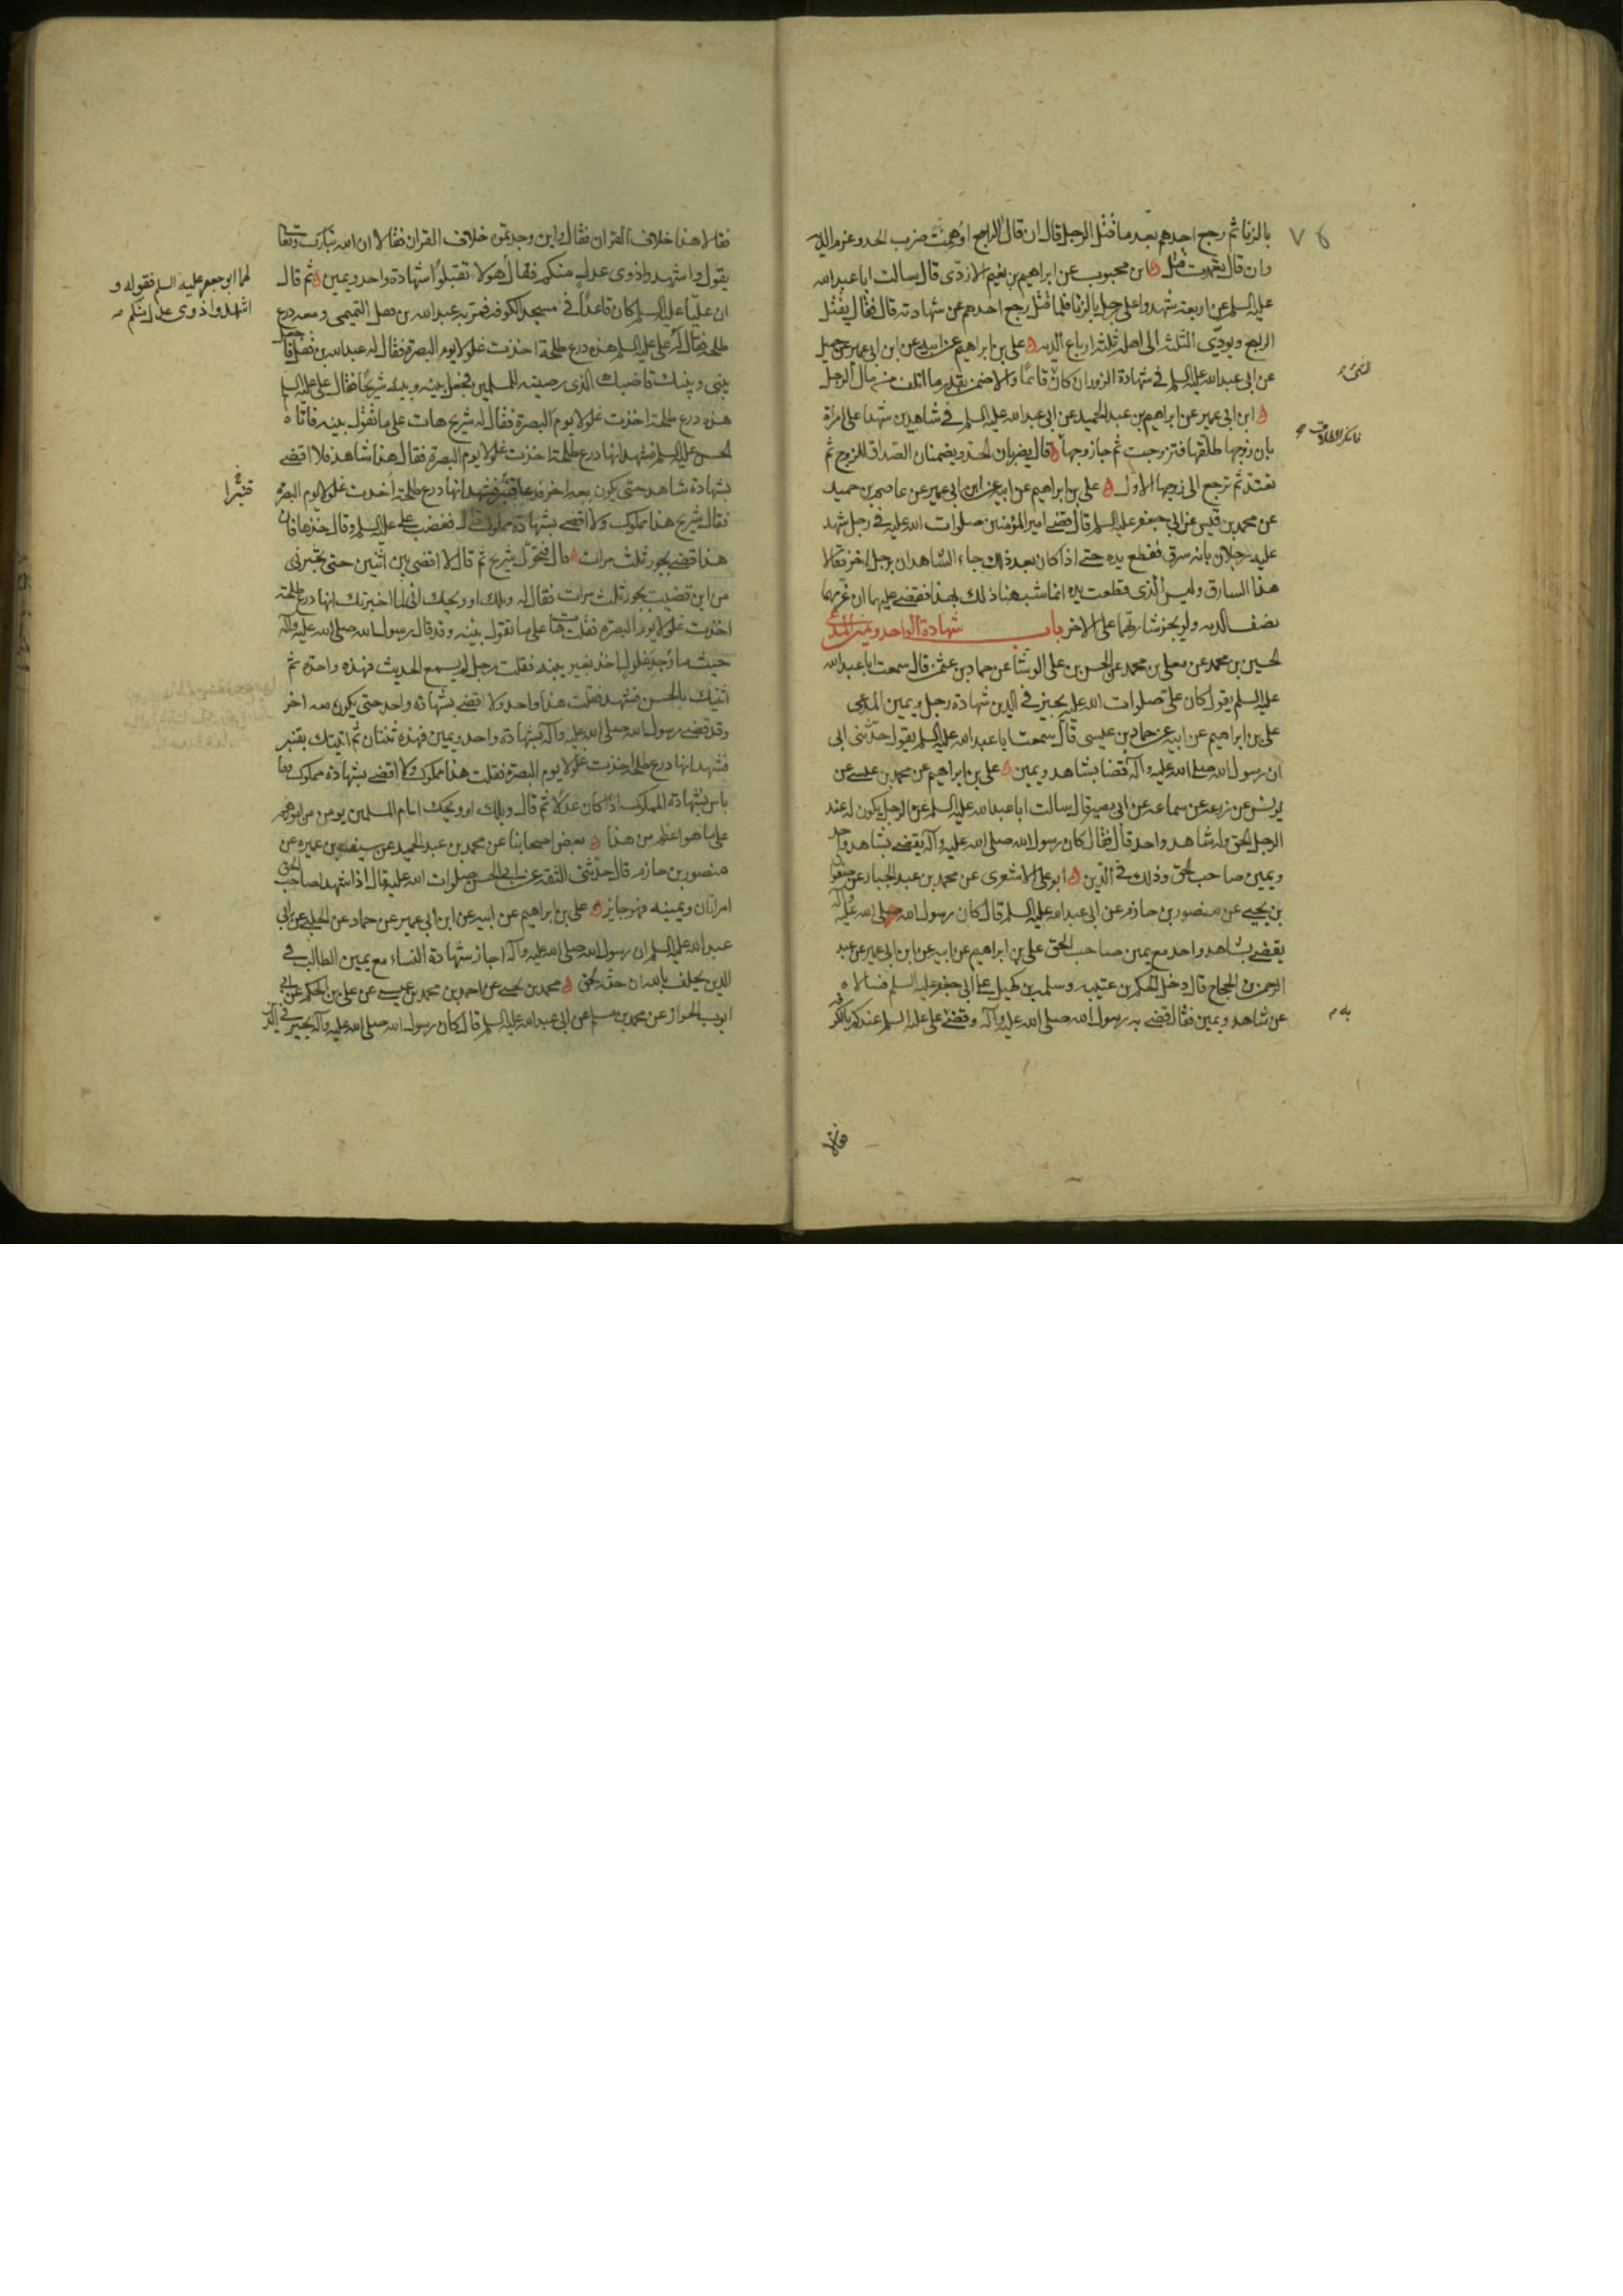 بالزنا ثم رجع احدهم بعد ما قتل الرجل قال ان قال الراجع اوهمت ضرب الحد وغرم الدية
وان قال تعمدت قتل ابن محبوب عن ابراهيم بن نعيم الازدى قال سالت ابا عبد الله
عليه السلم عن اربعة شهدوا على رجل بالزنا فلما قتل رجع احدهم عن شهادته قال فقال يقتل
الراجع ويودى الثلثة الى اهله ثلثة ارباع الدية على بن ابراهيم عن ابيه عن ابن ابى عمير عن جميل
عن ابى عبد الله عليه السلم فى شهادة الزور ان كان قائما والا ضمن بقدر ما اتلف من مال الرجل
الشئ
ابن ابى عمير عن ابراهيم بن عبد الحميد عن ابى عبد الله عليه السلم فى شاهدين شهدا على امراة
بان زوجها طلقها فتزوجت ثم جاء زوجها قال يضربان الحد ويضمنان الصداق للزوج ثم
فانكر الطلاق
تعتد ثم ترجع الى زوجها الاول على بن ابراهيم عن ابيه عن ابن ابى عمير عن عاصم بن حميد
عن محمد بن قيس عن ابى جعفر عليه السلم قال قضى امير المؤمنين صلوات الله عليه فى رجل شهد
عليه رجلان بانه سرق فقطع يده حتى اذا كان بعد ذلك جاء الشاهدان برجل اخر فقالا
هذا السارق وليس الذى قطعت يده انما شبهنا ذلك بهذا فقضى عليهما ان غرمهما
نصف الدية ولم يجز شهادتهما على الاخر باب شهادة الواحد ويمين المدعى
الحسين بن محمد عن معلى بن محمد عن الحسن بن على الوشا عن حماد بن عثمن قال سمعت ابا عبد الله
عليه السلم يقول كان على صلوات الله عليه يجيز فى الدين شهادة رجل ويمين المدعى
على بن ابراهيم عن ابيه عن حماد بن عيسى قال سمعت ابا عبد الله عليه السلم يقول حدثنى ابى
ان رسول الله صلى الله عليه وآله قضا بشاهد ويمين على بن ابراهيم عن محمد بن عيسى عن
يونس عن زرعة عن سماعة عن ابى بصير قال سالت ابا عبد الله عليه السلم عن الرجل يكون له عند
الرجل الحق وله شاهد واحد قال فقال كان رسول الله صلى الله عليه وآله يقضى بشاهد واحد
ويمين صاحب الحق وذلك فى الدين ابو على الاشعرى عن محمد بن عبد الجبار عن صفوان
بن يحيى عن منصور بن حازم عن ابى عبد الله عليه السلم قال كان رسول الله صلى الله عليه وآله
يقضى بشاهد واحد مع يمين صاحب الحق على بن ابراهيم عن ابيه عن ابن ابى عمير عن عبد
الرحمن بن الحجاج قال دخل الحكم بن عتيبه وسلمة بن كهيل على ابى جعفر عليه السلم فسالاه
عن شاهد ويمين فقال قضى به رسول الله صلى الله عليه وآله وقضى على عليه السلم عندكم بالكوفه
به
فقالا
فقالا هذا خلاف القران فقال واين وجدتموه خلاف القران فقالا ان الله تبارك وتعالى
يقول واشهدوا ذوى عدل منكم فقال هو لا تقبلوا شهادة واحد ويمين ثم قال
لهما ابو جعفر عليه السلم فقوله و
اشهدوا ذوى عدل منكم
ان عليا عليه السلم كان قاعدا فى مسجد الكوفه فمر به عبد الله بن قفل التميمى ومعه درع
طلحة فقال له على عليه السلم هذه درع طلحة اخذت غلولا يوم البصرة فقال له عبد الله بن قفل فاجعل
بينى وبينك قاضيك الذى رضيته للمسلمين فجعل بينه وبينه شريحا فقال على عليه السلم
هذه درع طلحة اخذت غلولا يوم البصرة فقال له شريح هات على ما تقول بينه فاتاه
الحسن عليه السلم فشهد انها درع طلحة اخذت غلولا يوم البصرة فقال هذا شاهد فلا اقضى
بشهادة شاهد حتى يكون معه اخر فدعا قنبر فشهد انها درع طلحة اخذت غلولا يوم البصرة
قنبرا
فقال شريح هذا مملوك ولا اقضى بشهادة مملوك قال فغضب على عليه السلم وقال خذها فان
هذا قضى بجور ثلث مرات قال فتحول شريح ثم قال لا اقضى بين اثنين حتى تخبرنى
من اين قضيت بجور ثلث مرات فقال له ويلك او ويحك انى لما اخبرتك انها درع طلحة
اخذت غلولا يوم البصرة فقلت هات على ما تقول بينه وقد قال رسول الله صلى الله عليه وآله
حيث ما وجد غلول اخذ بغير بينه فقلت رجل لم يسمع الحديث فهذه واحدة ثم
اتيتك بالحسن فشهد فقلت هذا واحد ولا اقضى بشهادة واحد حتى يكون معه اخر
وقد قضى رسول الله صلى الله عليه وآله بشهادة واحد ويمين فهذه ثنتان ثم اتيتك بقنبر
فشهد انها درع طلحة اخذت غلولا يوم البصرة فقلت هذا مملوك ولا اقضى بشهادة مملوك وما
باس بشهادة المملوك اذا كان عدلا ثم قال ويلك او ويحك امام المسلمين يومن من امورهم
على ما هو اعظم من هذا بعض اصحابنا عن محمد بن عبد الحميد عن سيف بن عميره عن
منصور بن حازم قال حدثنى الثقة عن ابى الحسن صلوات الله عليه قال اذا شهد لصاحب الحق
امراتان ويمينه فهو جايز على بن ابراهيم عن ابيه عن ابن ابى عمير عن حماد عن الحلبى عن ابى
عبد الله عليه السلم ان رسول الله صلى الله عليه وآله اجاز شهادة النساء مع يمين الطالب فى
الدين يحلف بالله ان حقه لحق محمد بن يحيى عن احمد بن محمد بن عيسى عن على بن الحكم عن ابى
ايوب الخزاز عن محمد بن مسلم عن ابى عبد الله عليه السلم قال كان رسول الله صلى الله عليه وآله يجيز فى الدين